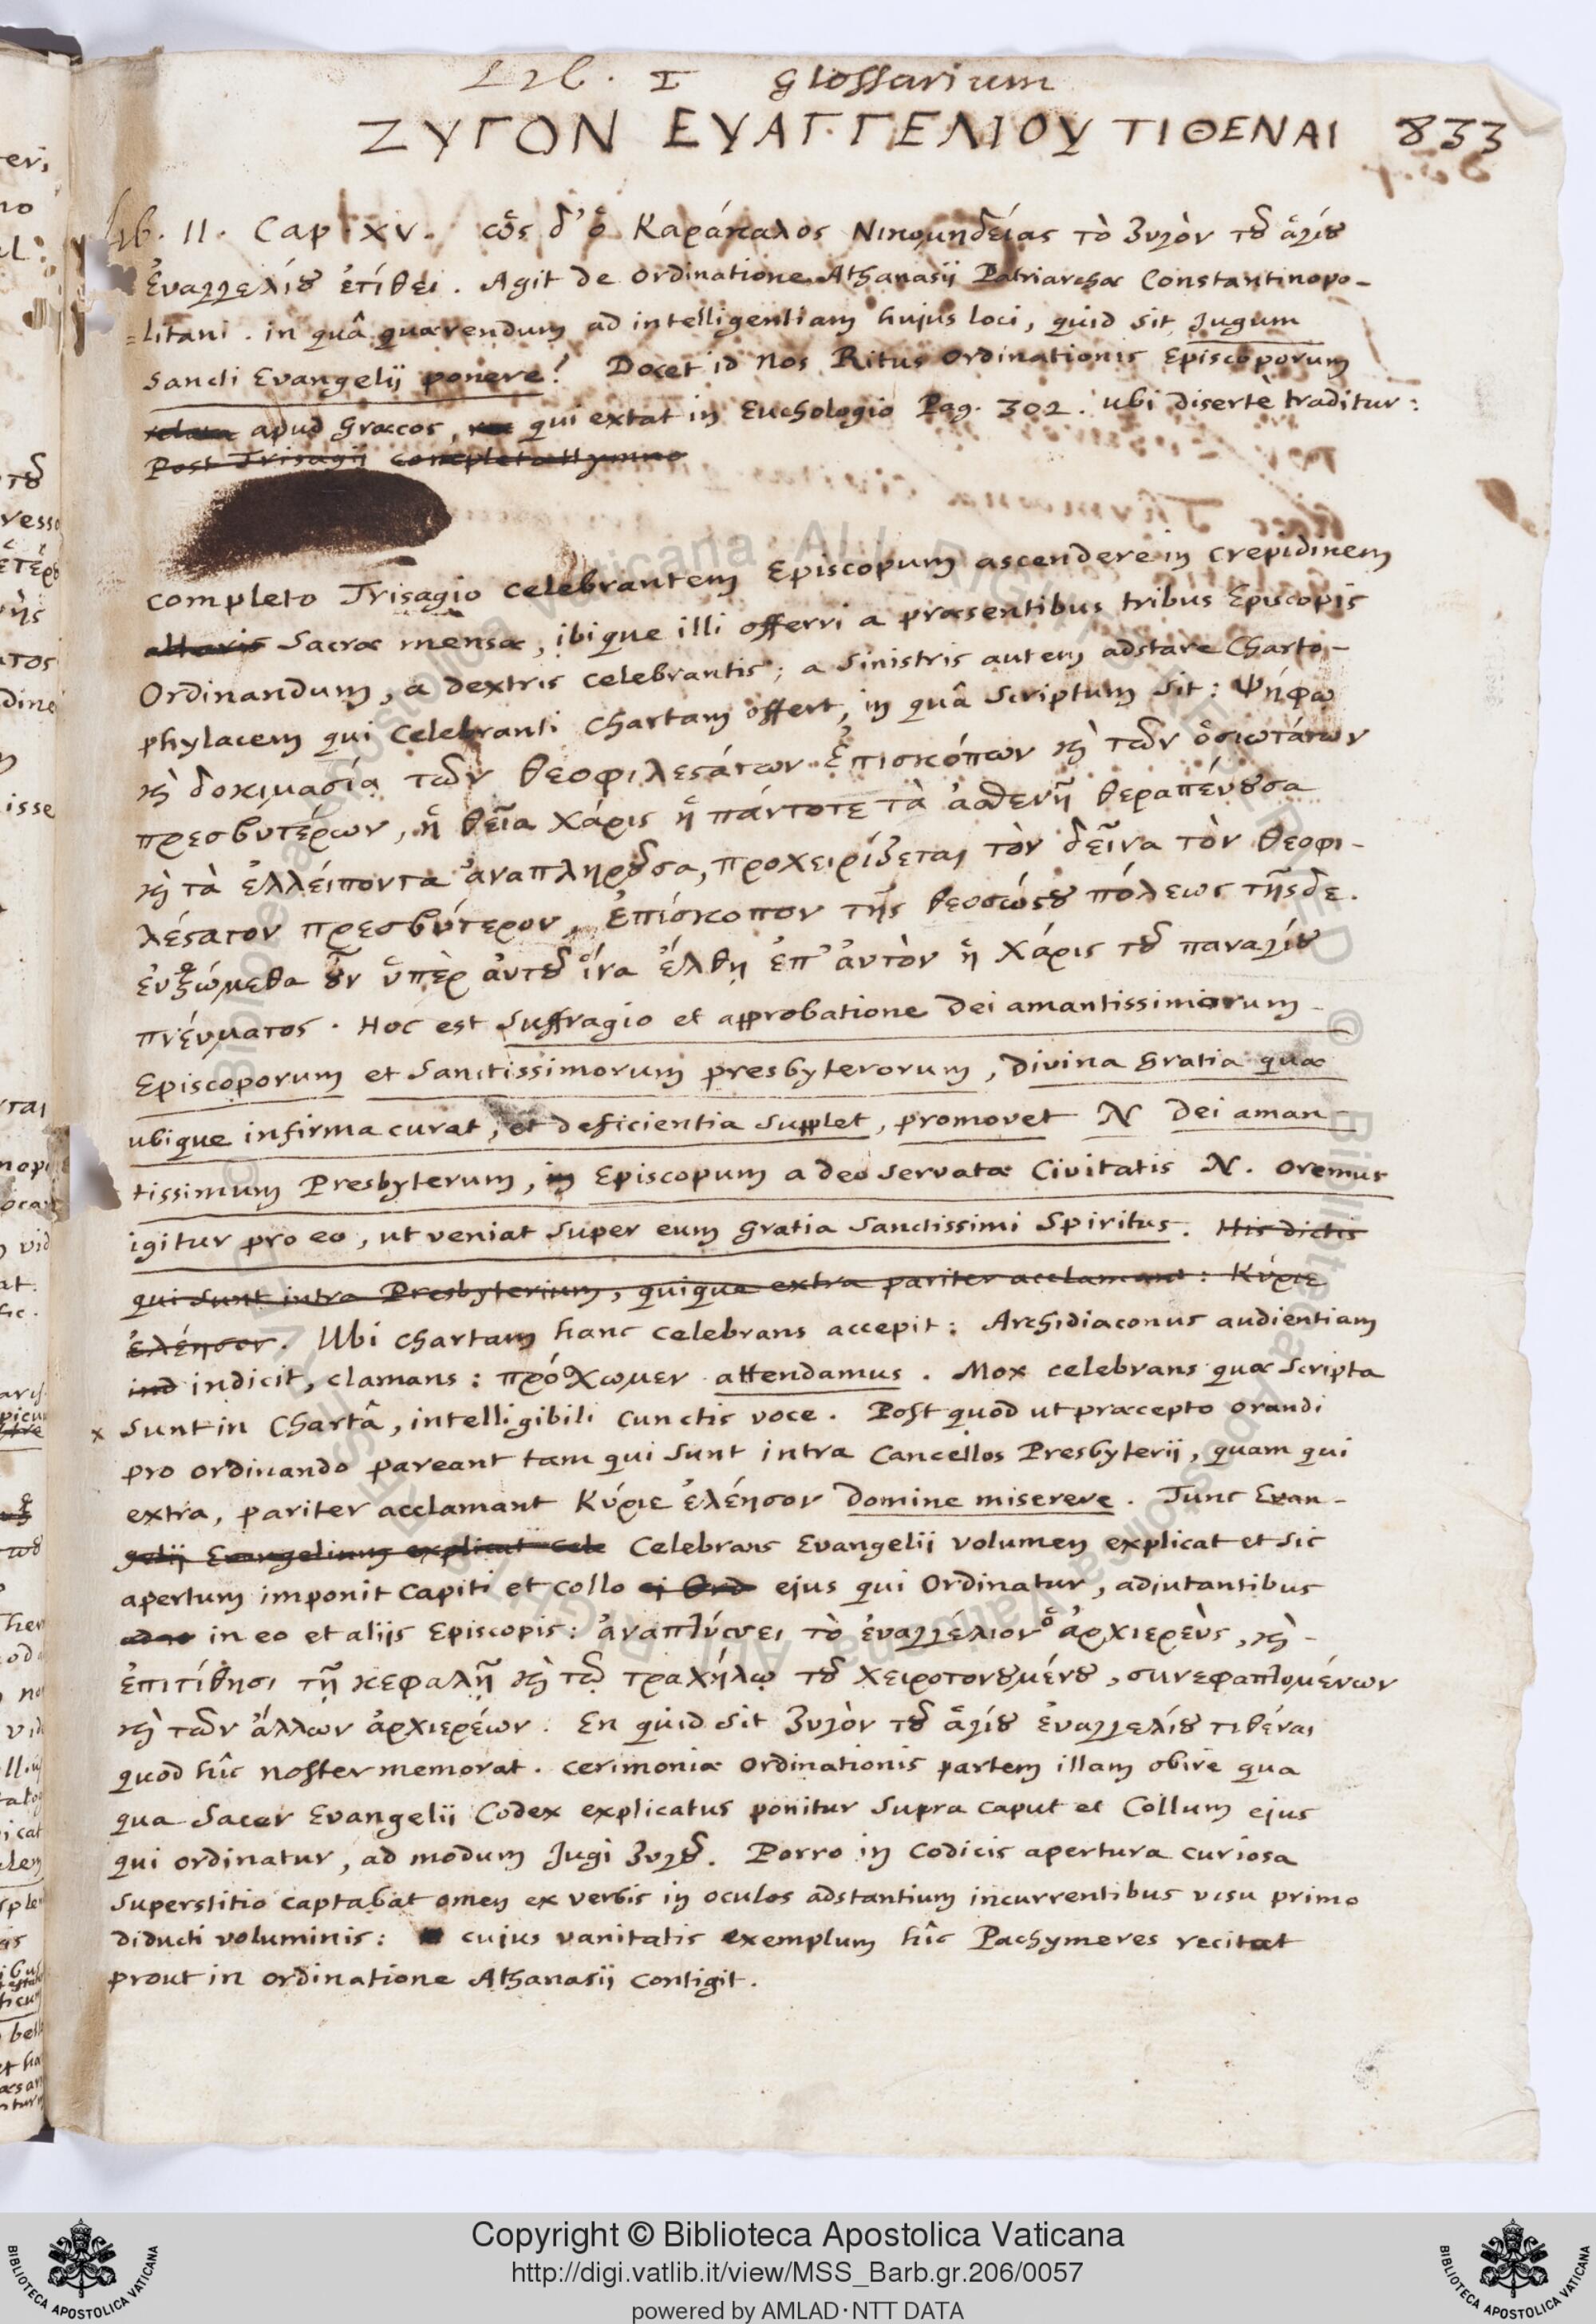 Lib. I glossarium
ΖΥΓΟΝ ΕΥΑΓΓΕΛΙΟΥ ΤΙΘΕΝΑΙ 833
Lib. II. Cap. XV. ὡς δ' ὁ Καράκαλος Νικομηδείας τὸ ζυγὸν τοῦ ἁγίου
ἐυαγγελίου ἐτίθει. Agit de ordinatione Athanasii Patriarchæ Constantinopo-
=litani. in quâ quærendum ad intelligentiam hujus loci, quid sit Jugum
Sancti Evangelij ponere? Docet id nos Ritus Ordinationis Episcoporum
apud Græcos, qui extat in Euchologio Pag. 302. ubi disertè traditur:
Post Trisagij completo Hymno
completo Trisagio celebrantem Episcopum ascendere in crepidinem
altaris Sacræ mensæ, ibique illi offerri a præsentibus tribus Episcopis
Ordinandum, a dextris celebrantis; a sinistris autem adstare Charto-
phylacem qui Celebranti Chartam offert, in quâ scriptum sit: Ψήφῳ
καὶ δοκιμασίᾳ τῶν θεοφιλεστάτων Ἐπισκόπων καὶ τῶν ὁσιωτάτων
πρεσβυτέρων, ἡ θεῖα χάρις ἡ πάντοτε τὰ ἀσθενῆ θεραπέυουσα
καὶ τὰ ἐλλείποντα ἀναπληροῦσα, προχειρίζεται τὸν δεῖνα τὸν θεοφι-
λέστατον πρεσβύτερον, ἐπίσκοπον τῆς θεοσώστου πόλεως τῆςδε.
ἐυξώμεθα οὖν ὑπὲρ ἀυτοῦ ἵνα ἔλθῃ ἐπ' ἀυτὸν ἡ χάρις τοῦ παναγίου
πνέυματος. Hoc est Suffragio et approbatione Dei amantissimorum
Episcoporum et Sanctissimorum presbyterorum, Divina Gratia quæ
ubique infirma curat, et deficientia supplet, promovet N Dei aman-
tissimum Presbyterum, in Episcopum a deo servatæ Civitatis N. oremus
igitur pro eo, ut veniat super eum Gratia Sanctissimi Spiritus. His dictis
qui sunt intra Presbyterium, quique extra pariter acclamant: Κύριε
ἐλέησον. Ubi chartam hanc celebrans accepit: Archidiaconus audientiam
ind indicit, clamans: πρόσχωμεν attendamus. Mox celebrans quæ scripta
x sunt in Chartâ, intelligibili cunctis voce. Post quod ut præcepto orandi
pro ordinando pareant tam qui sunt intra Cancellos Presbyterij, quam qui
extra, pariter acclamant Κύριε ἐλέησον Domine miserere. Tunc Evan-
gelij Evangelium explicat cele Celebrans Evangelii volumen explicat et sic
apertum imponit capiti et collo ej Ord ejus qui Ordinatur, adjutantibus
in eo et alijs Episcopis: ἀναπτύσσει τὸ ἐυαγγέλιον ὁ ἀρχιερεὺς, καὶ
ἐπιτίθησι τῇ κεφαλῇ καὶ τῷ τραχήλῳ τοῦ χειροτονουμένου, συνεφαπτομένων
καὶ τῶν ἄλλων ἀρχιερέων. En quid sit ζυγὸν τοῦ ἁγίου ἐυαγγελίου τιθέναι
quod hîc noster memorat. cerimoniæ ordinationis partem illam obire qua
qua Sacer Evangelii Codex explicatus ponitur supra caput et Collum ejus
qui ordinatur, ad modum Jugi ζυγοῦ. Porro in codicis apertura curiosa
superstitio captabat omen ex verbis in oculos adstantium incurrentibus visu primo
diducti voluminis: cujus vanitatis exemplum hîc Pachymeres recitat
prout in ordinatione Athanasij contigit.
Copyright © Biblioteca Apostolica Vaticana
http://digi.vatlib.it/view/MSS_Barb.gr.206/0057
powered by AMLAD·NTT DATA
BIBLIOTECA APOSTOLICA VATICANA
BIBLIOTECA APOSTOLICA VATICANA